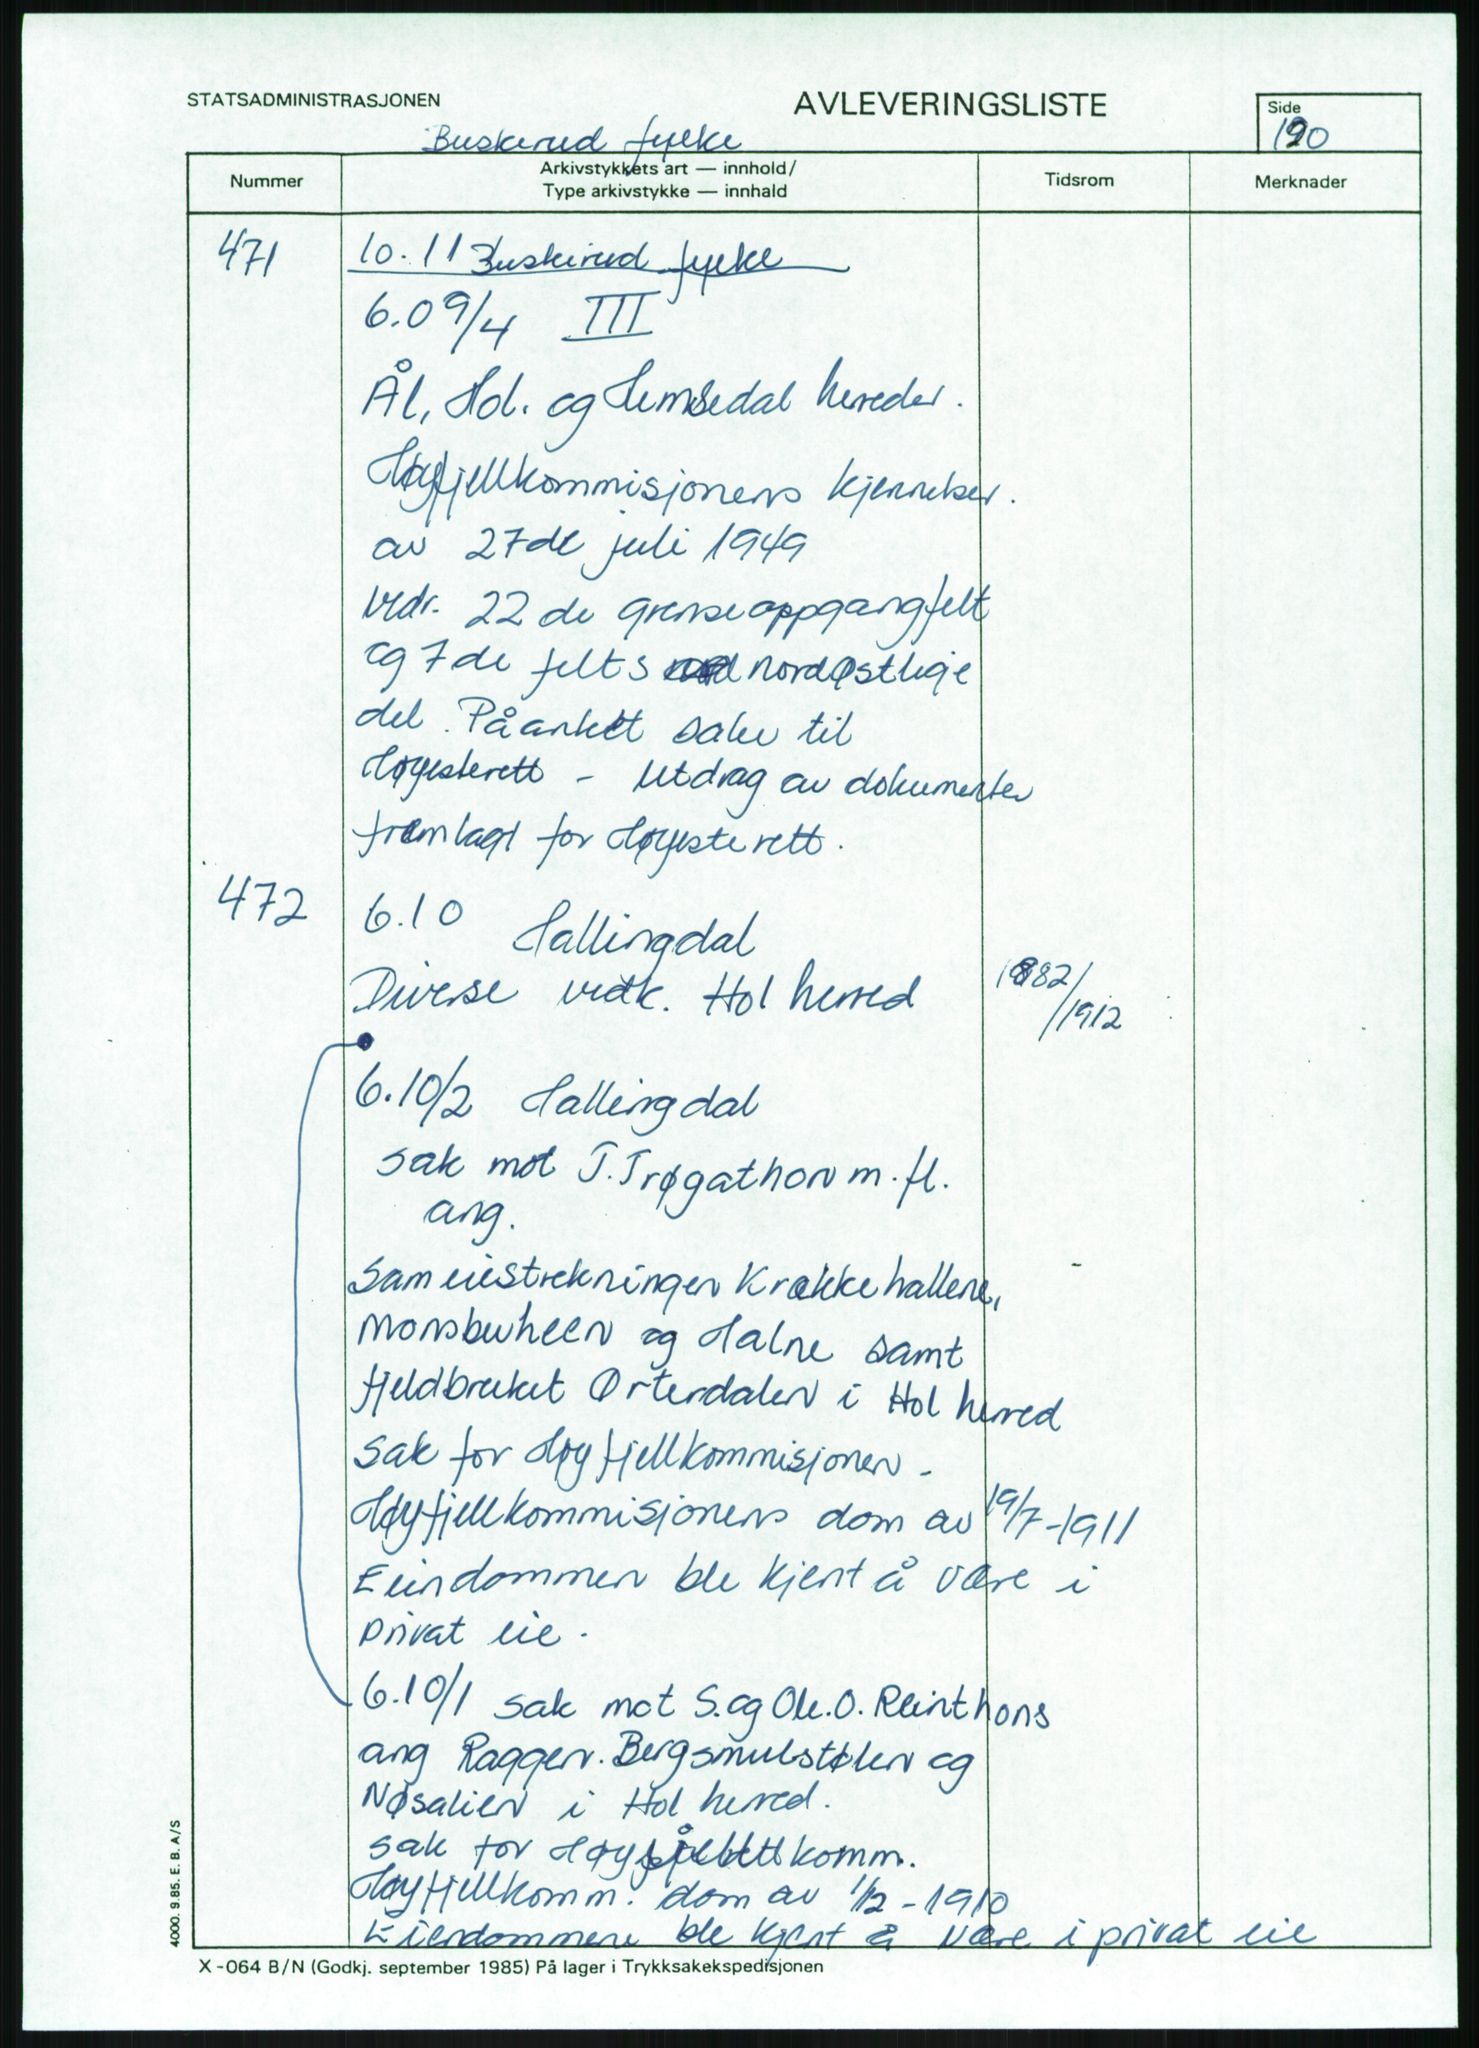 STATSADMINISTRASJONEN
AVLEVERINGSLISTE
Side
190
Buskerud fylke
Nummer
Arkivstykkets art — innhold/
Type arkivstykke — innhald
Tidsrom
Merknader
471
10.11 Buskerud fylke
6.09/4 III
Ål, Hol. og Hemsedal herreder.
Høyfjellkommisjonens kjennelser.
av 27de juli 1949
vedr. 22 de grenseoppgangfelt
og 7 de felts nordøstlige
del. Påanket saker til
Høyesterett - Utdrag av dokumenter
fremlagt for Høyesterett.
472
6.10 Hallingdal
Diverse vedk. Hol herred
1882/
/1912
6.10/2 Hallingdal
sak mot T. Trøgathon m.fl.
ang.
Sameiestrekningen Krækkehallene,
Monsbuheen og Halne samt
fjeldbruket Ørterdalen i Hol herred
Sak for Høyfjellkommisjonen -
Høyfjellkommisjonens dom av 19/7-1911
Eiendommen ble kjent å være i
privat eie.
6.10/1 sak mot S. og Ole. O. Reinthons
ang Raggen. Bergsmulstølen og
Nøsalien i Hol herred.
sak for komm.
Høyfjellkomm. dom av 1/12-1910
Eiendommene ble kjent å være i privat eie
4000. 9.85. E. B. A/S
X-064 B/N (Godkj. september 1985) På lager i Trykksakekspedisjonen